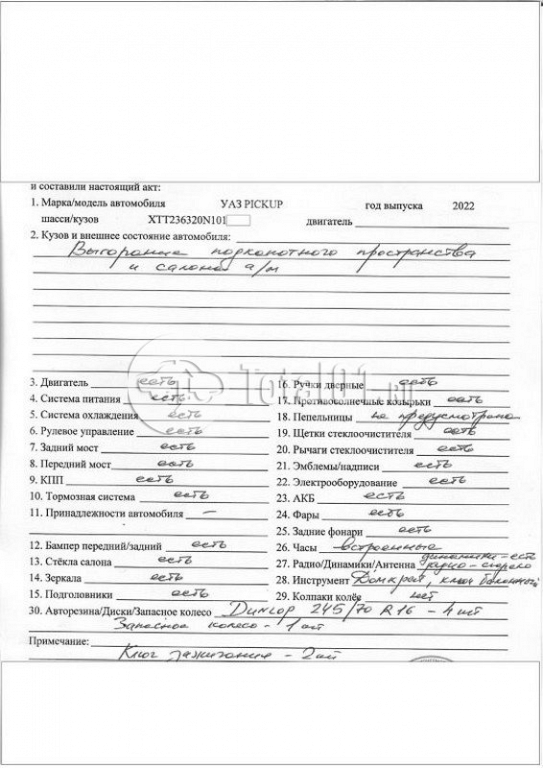 и составили настоящий акт:
1. Марка/модель автомобиля УАЗ PICKUP год выпуска 2022
шасси/кузов XTT236320N101 двигатель
2. Кузов и внешнее состояние автомобиля:
Выгорание подкапотного пространства
и салона а/м
3. Двигатель есть
4. Система питания есть
5. Система охлаждения есть
6. Рулевое управление есть
7. Задний мост есть
8. Передний мост есть
9. КПП есть
10. Тормозная система есть
11. Принадлежности автомобиля –
12. Бампер передний/задний есть
13. Стёкла салона есть
14. Зеркала есть
15. Подголовники есть
16. Ручки дверные есть
17. Противосолнечные козырьки есть
18. Пепельницы не предусмотрена
19. Щетки стеклоочистителя есть
20. Рычаги стеклоочистителя есть
21. Эмблемы/надписи есть
22. Электрооборудование есть
23. АКБ есть
24. Фары есть
25. Задние фонари есть
26. Часы встроенные
динамики-есть
27. Радио/Динамики/Антенна радио-сгорело
28. Инструмент Домкрат, ключ балонный
29. Колпаки колёс нет
30. Авторезина/Диски/Запасное колесо Dunlop 245/70 R16 - 4 шт
Запасное колесо - 1 шт
Примечание:
Ключ зажигания - 2 шт
Total01.ru